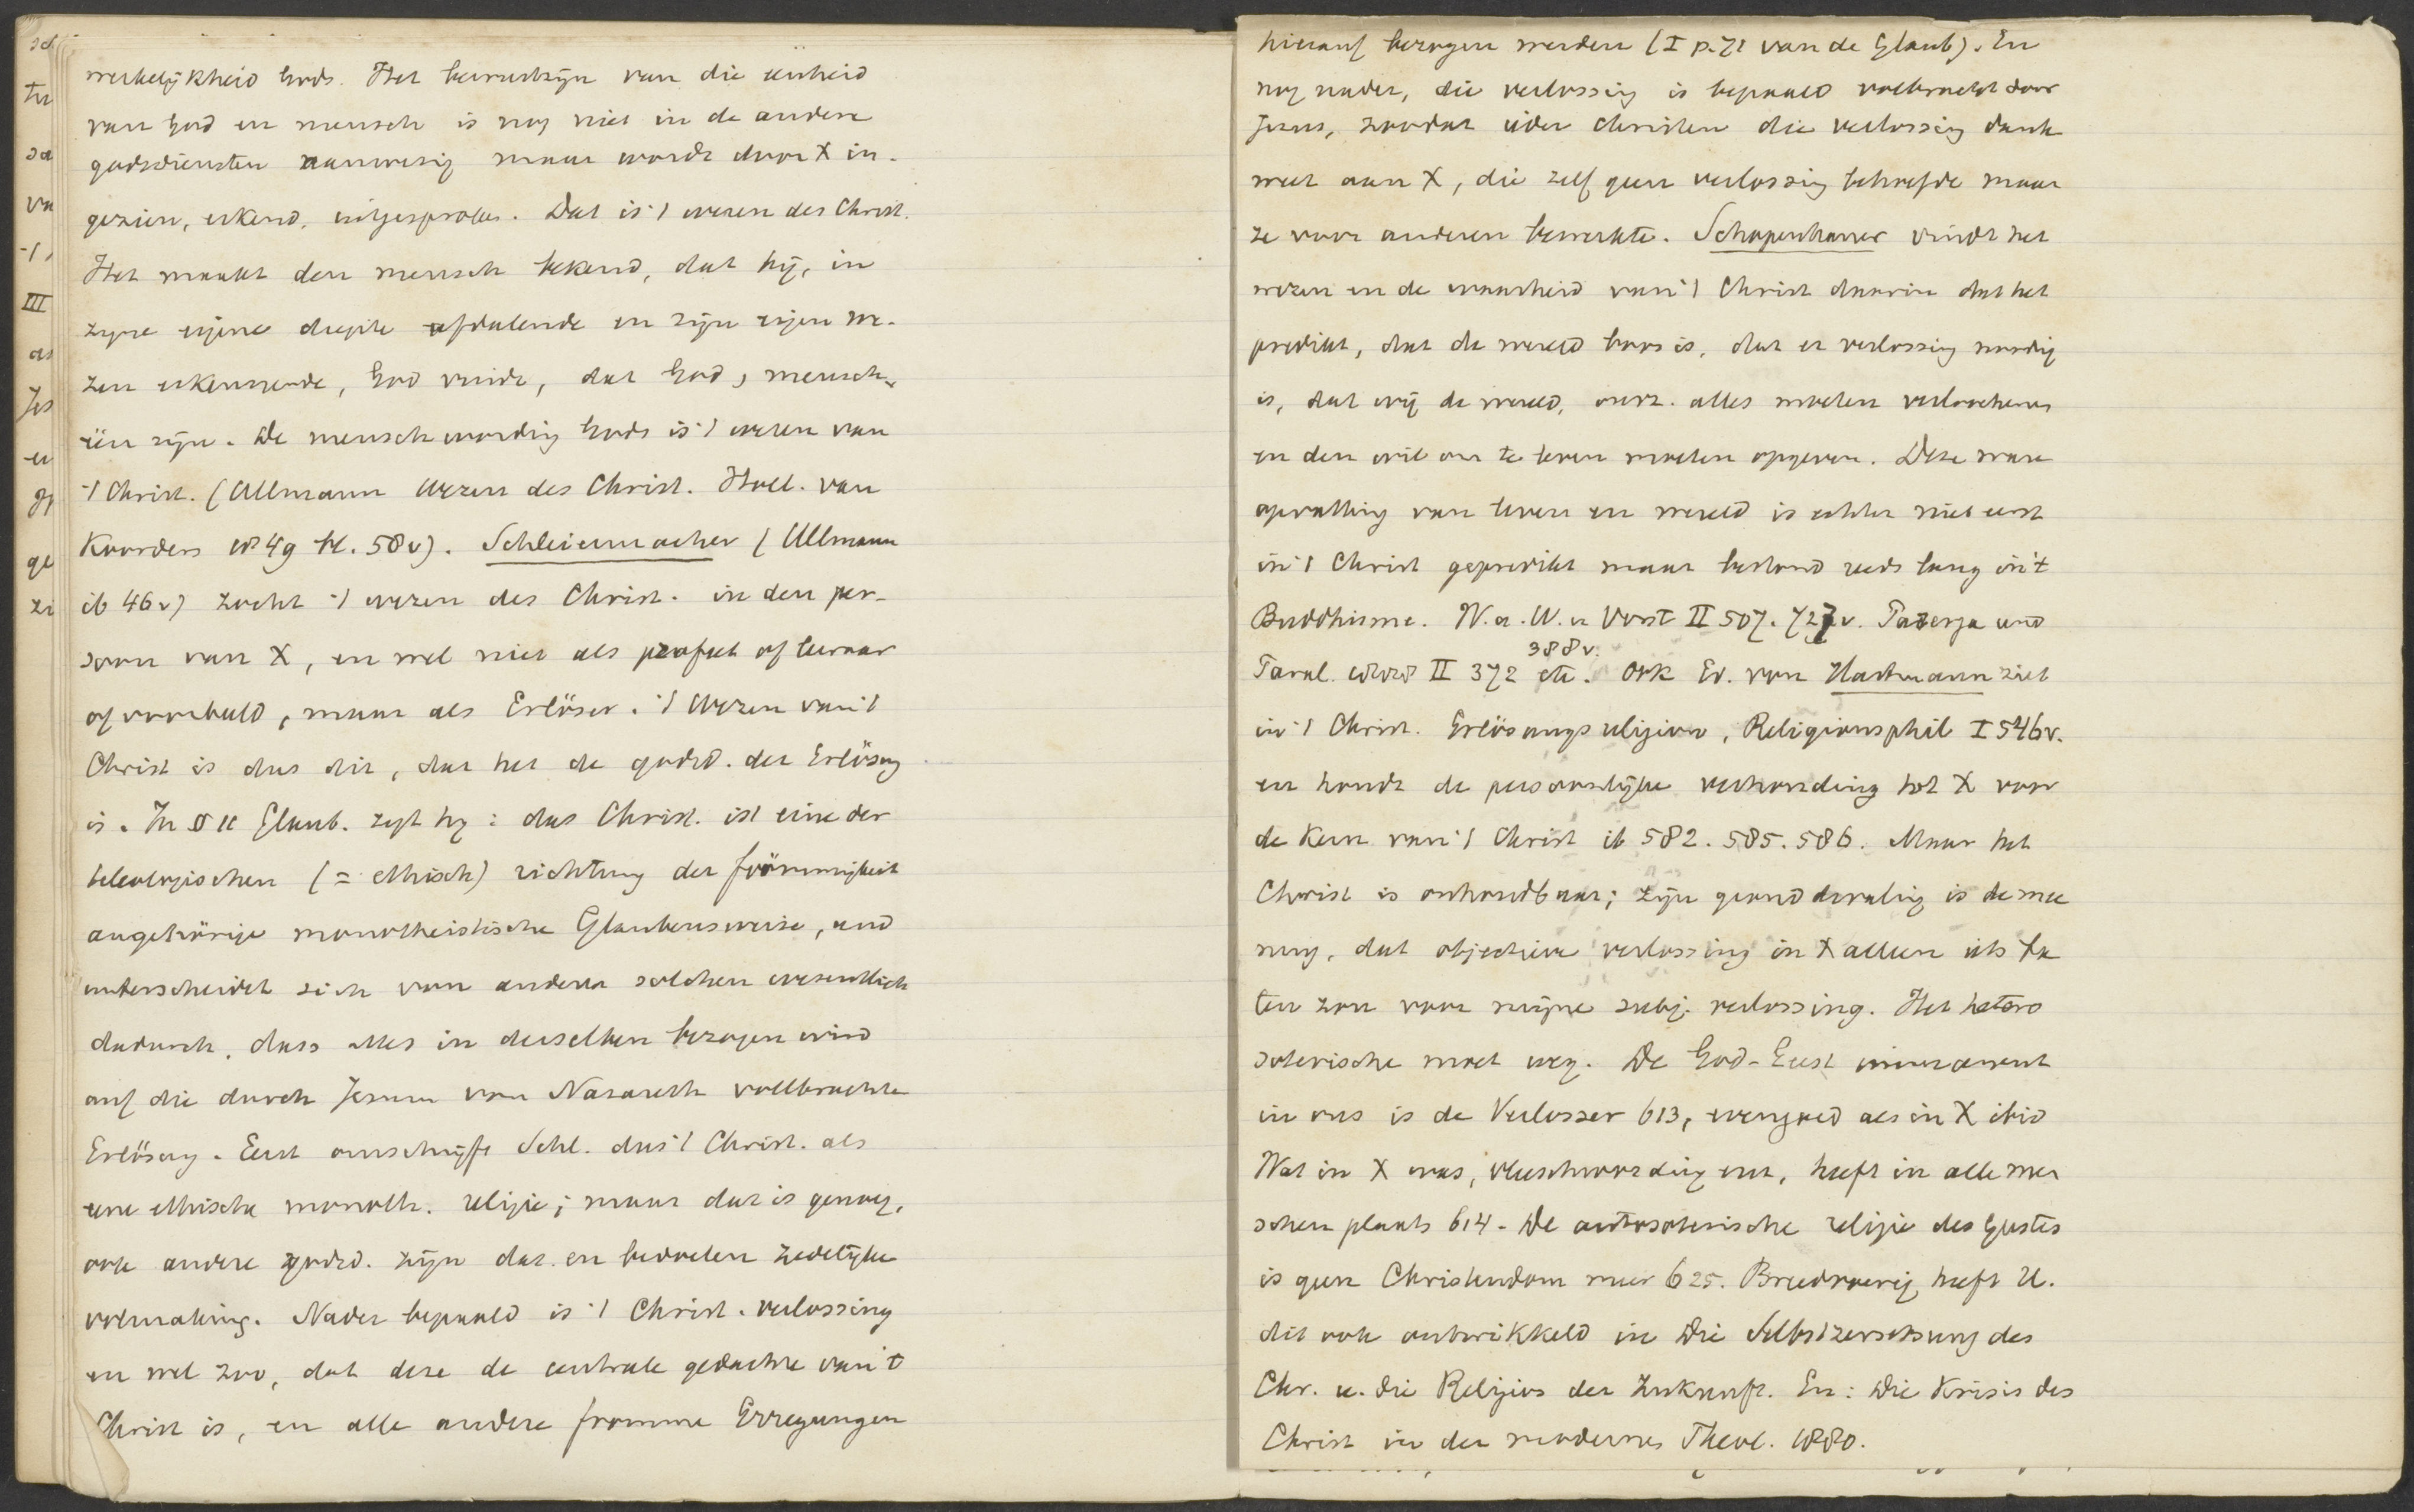 werkelijkheid Gods. Het bewustzijn van die eenheid
van God en mensch is nog niet in de andere
godsdiensten aanwezig maar wordt door X in-
gezien, erkend, uitgesproken. Dat is 't wezen des Christ.
Het maakt den mensch bekend, dat hij, in
zijne eigene diepte afdalende en zijn eigen we-
zen erkennende, God vindt, dat God, mensch
één zijn. De menschwording Gods is 't wezen van
't Christ. (Ullmann Wezen des Christ. Holl. van
Koorders 1849 bl. 58v). Schleiermacher (Ullmann
ib 46v) zocht 't wezen des Christ. in den per-
soon van X, en wel niet als profeet of leeraar
of voorbeeld, maar als Erlöser. 't Wezen van 't
Christ is dus dit, dat het de godsd. der Erlösung
is. In § 11 Glaub. zegt hij: das Christ. ist eine der
teleologischen (= ethisch) richtung der frömmigkeit
angehörige monotheistische Glaubensweise, und
unterscheidet sich von andern solchen wesentlich
dadurch, dass alles in derselben bezogen wird
auf die durch Jesum von Nazareth vollbrachte
Erlösung. Eerst omschrijft Schl. dus 't Christ. als
eene ethische monoth. religie; maar dat is genoeg,
ook andere godsd. zijn dat en bedoelen zedelijke
volmaking. Nader bepaald is 't Christ. verlossing
en wel zoo, dat deze de centrale gedachte van 't
Christ is, en alle andere fromme Erregungen
hierauf bezogen werden (I p. 71 van de Glaub). En
nog nader, die verlossing is bepaald volbracht door
Jezus, zoodat ieder christen die verlossing dank
weet aan X, die zelf geen verlossing behoefde maar
ze voor anderen bewerkte. Schopenhauer vindt het
wezen en de waarheid van 't Christ daarin dat het
predikt, dat de wereld boos is, dat er verlossing noodig
is, dat wij de wereld, onsz. alles moeten verloochenen
en den wil om te leven moeten opgeven. Deze ware
opvatting van leven en wereld is echter niet eerst
in 't Christ gepredikt maar bestond reeds lang in 't
Buddhisme. W. a. W. u Vorst II 507. 727v. Parerga und
388v.
Paral. II 372 etc. Ook Ed. von Hartmann ziet
in 't Christ. Erlösungsreligion, Religionsphil I 546v.
en houdt de persoonlijke verhouding tot X voor
de Kern van 't Christ ib 582. 585. 586. Maar het
Christ is onhoudbaar; zijn gronddwaling is de mee
ning, dat objectieve verlossing in X alleen iets ba
ten zou voor mijne subj. verlossing. Het hetero
soterische moet weg. De God-Geest immanent
in ons is de Verlosser 613, evengoed als in X ibid
Wat in X was, vleeschwording enz, heeft in alle men
schen plaats 614. De autosoterische religie des Geestes
is geen Christendom meer 625. Breedvoerig heeft H.
dit ook ontwikkeld in Die Selbstzersetzung des
Chr. u. die Religion der Zukunft. En: Die Krisis des
Christ in der modernen Theol. 1880.